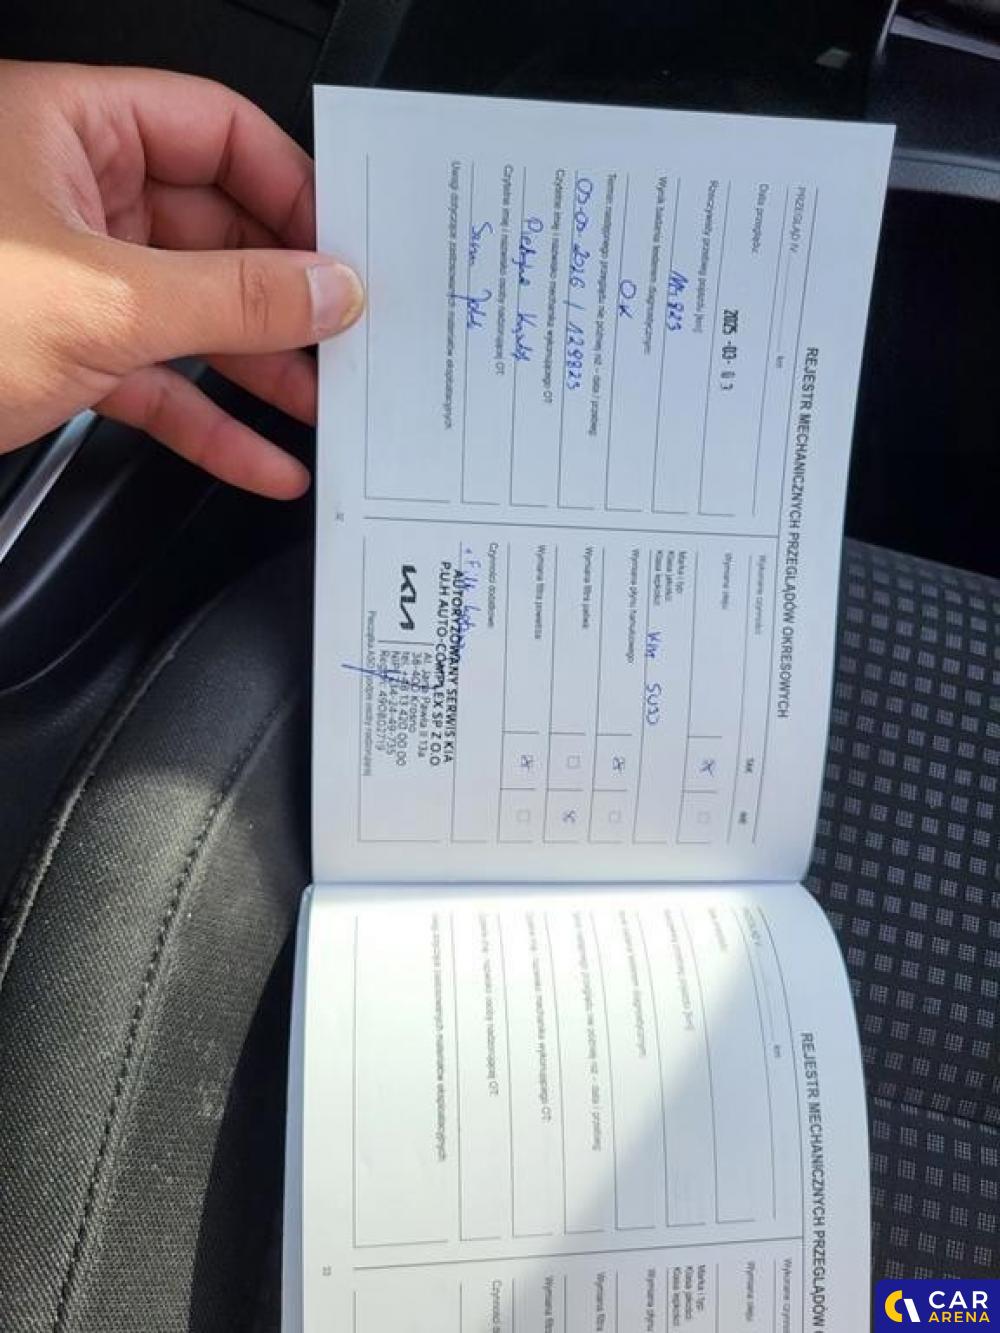 REJESTR MECHANICZNYCH PRZEGLĄDÓW OKRESOWYCH
PRZEGLĄD IV
km
Data przeglądu:
2025 -03- 03
Rzeczywisty przebieg pojazdu [km]:
823
Wynik badania testerem diagnostycznym:
OK
Termin następnego przeglądu nie później niż – data / przebieg:
2026 / 129823
Czytelne imię i nazwisko mechanika wykonującego OT:
Czytelne imię i nazwisko osoby nadzorującej OT:
Uwagi dotyczące zastosowanych materiałów eksploatacyjnych:
32
Wykonane czynności
TAK
NIE
Wymiana oleju:
Marka i typ:
Klasa jakości:
Klasa lepkości:
5W30
Wymiana płynu hamulcowego:
Wymiana filtra paliwa:
Wymiana filtra powietrza:
Czynności dodatkowe:
AUTORYZOWANY SERWIS KIA
P.U.H AUTO-COMPLEX SP Z O.O
KIA
Al. Jana Pawła II 13a
38-400 Krosno
tel. +48 13 420 00 00
Regon: 490802719
REJESTR MECHANICZNYCH PRZEGLĄDÓW
km
Rzeczywisty przebieg pojazdu [km]:
Wynik badania testerem diagnostycznym:
Termin następnego przeglądu nie później niż – data / przebieg:
Czytelne imię i nazwisko mechanika wykonującego OT:
Czytelne imię i nazwisko osoby nadzorującej OT:
Uwagi dotyczące zastosowanych materiałów eksploatacyjnych:
33
Wykonane
Wymiana oleju:
Marka i typ:
Klasa jakości:
Klasa lepkości:
Wymiana
Wymiana
Wymiana
CAR
ARENA